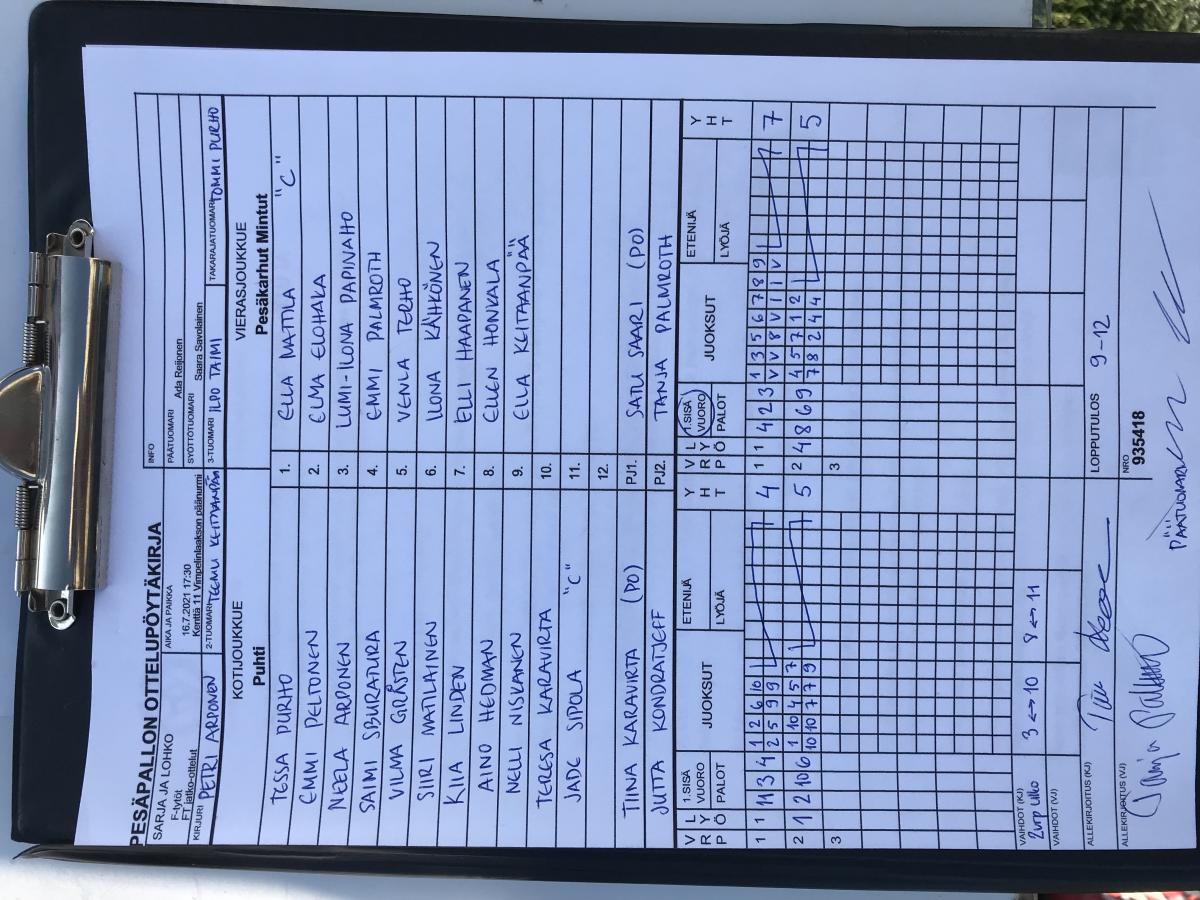 PESÄPALLON OTTELUPÖYTÄKIRJA
SARJA JA LOHKO
F-tytöt
FT jatko-ottelut
AIKA JA PAIKKA
16.7.2021 17:30
Kenttä 11 Vimpelinlaakson päänurmi
INFO
PÄÄTUOMARI Ada Reijonen
SYÖTTÖTUOMARI Saara Savolainen
KIRJURI PETRI ARPONEN
2-TUOMARI TEEMU KEITAANPÄÄ
3-TUOMARI ILPO TAIMI
TAKARAJATUOMARI TOMMI PURHO
KOTIJOUKKUE
Puhti
VIERASJOUKKUE
Pesäkarhut Mintut
TESSA PURHO 1. ELLA MATTILA "C"
EMMI PELTONEN 2. ELMA ELOHAKA
NEELA ARPONEN 3. LUMI-ILONA PAPINAHO
SAIMI 4. EMMI PALMROTH
VILMA GRÅSTEN 5. VENLA TERHO
SIIRI MATILAINEN 6. ILONA KÄHKÖNEN
KIIA LINDEN 7. ELLI HAAPANEN
AINO HEDMAN 8. ELLEN HONKALA
NELLI NISKANEN 9. ELLA KEITAANPÄÄ
TERESA KARAVIRTA 10.
JADE SIPOLA "C" 11.
12.
TIINA KARAVIRTA (PO) PJ1. SATU SAARI (PO)
JUTTA KONDRATJEFF PJ2. TANJA PALMROTH
V R P L Y Ö 1.SISÄ VUORO PALOT JUOKSUT ETENIJÄ LYÖJÄ Y H T V R P L Y Ö 1.SISÄ VUORO PALOT JUOKSUT ETENIJÄ LYÖJÄ Y H T
1 1 11 3 4 1 2 6 10 4 1 1 4 2 3 1 3 5 6 7 8 9 7
2 5 9 9 V V 8 V I I V
2 1 2 10 6 1 10 4 5 7 5 2 4 8 6 9 4 5 7 1 2 5
10 10 7 7 9 7 8 2 4 4
3 3
VAIHDOT (KJ)
2vrp ulko 3 ↔ 10 8 ↔ 11
VAIHDOT (VJ)
ALLEKIRJOITUS (KJ)
LOPPUTULOS 9-12
ALLEKIRJOITUS (VJ)
Tanja Palmroth
NRO
935418
PÄÄTUOMARI